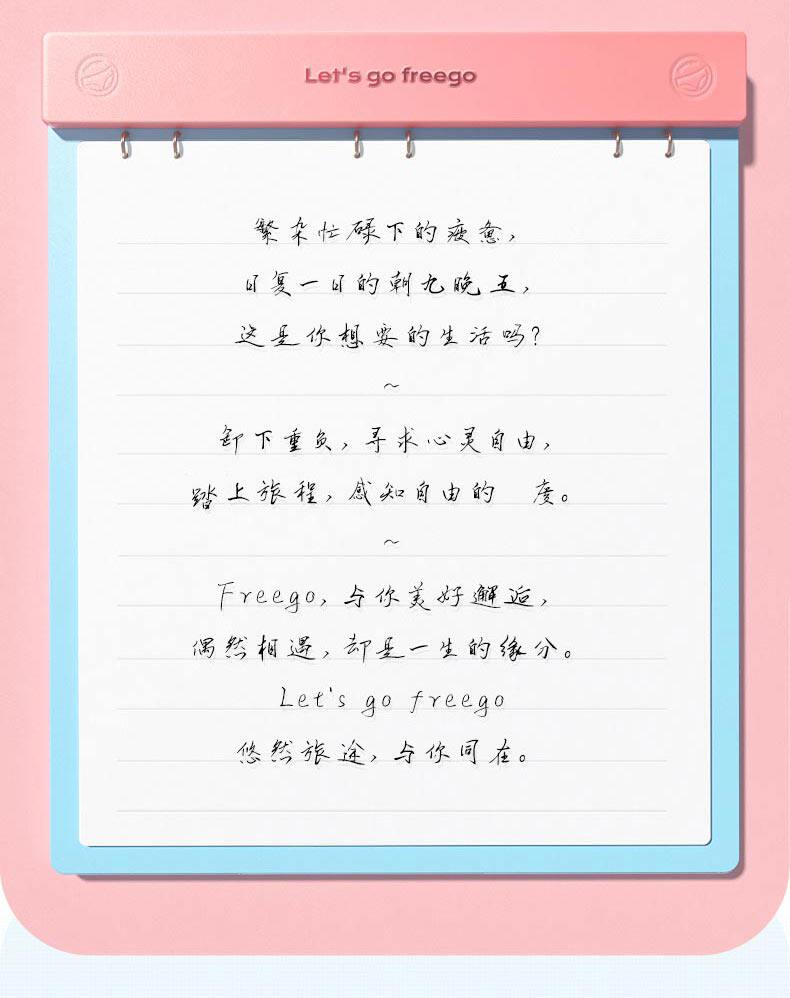 Let's go freego
繁杂忙碌下的疲惫，
日复一日的朝九晚五，
这是你想要的生活吗？
~
卸下重负，寻求心灵自由，
踏上旅程，感知自由的 度。
~
Freego，与你美好邂逅，
偶然相遇，却是一生的缘分。
Let's go freego
悠然旅途，与你同在。